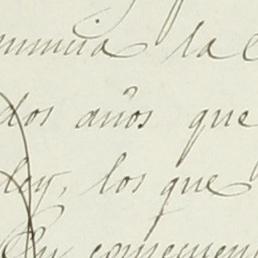 nuncia la
dos años que
ley, los que
En consecuen